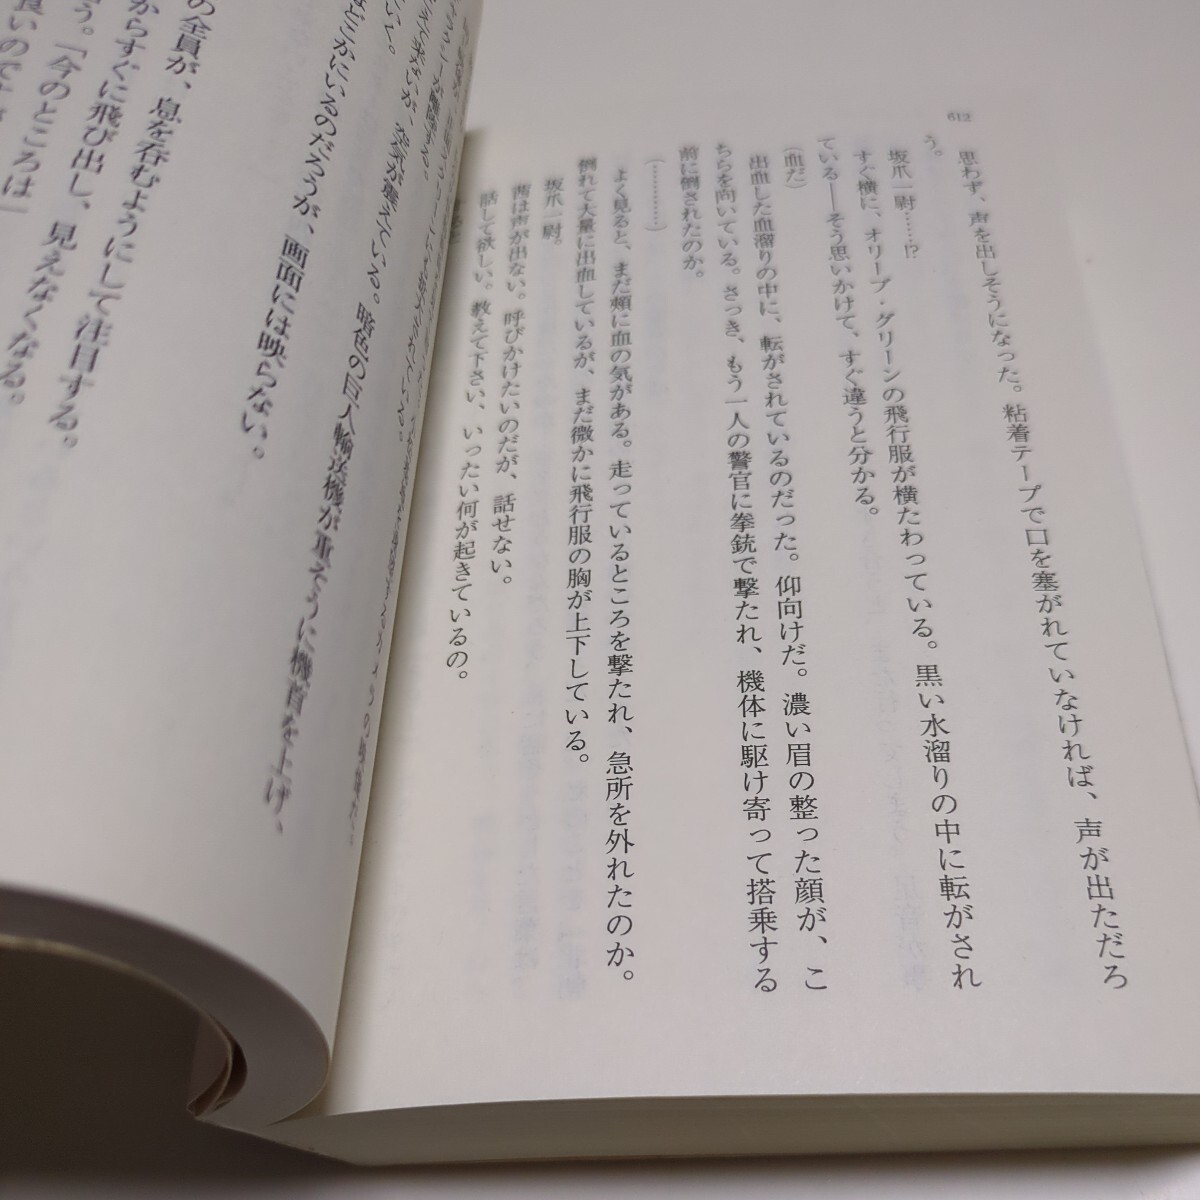 612
思わず、声を出しそうになった。粘着テープで口を塞がれていなければ、声が出ただろ
う。
坂爪一尉……!?
すぐ横に、オリーブ・グリーンの飛行服が横たわっている。黒い水溜りの中に転がされ
ている――そう思いかけて、すぐ違うと分かる。
（血だ）
出血した血溜りの中に、転がされているのだった。仰向けだ。濃い眉の整った顔が、こ
ちらを向いている。さっき、もう一人の警官に拳銃で撃たれ、機体に駆け寄って搭乗する
前に倒されたのか。
（…………）
よく見ると、まだ頬に血の気がある。走っているところを撃たれ、急所を外れたのか。
倒れて大量に出血しているが、まだ微かに飛行服の胸が上下している。
坂爪一尉。
茜は声が出ない。呼びかけたいのだが、話せない。
話して欲しい。教えて下さい、いったい何が起きているの。
が離陸する。
えて来ないが、空気が震えている。暗色の巨人輸送機が重そうに機首を上げ、
ていく。
はどこかにいるのだろうが、画面には映らない。
の全員が、息を呑むようにして注目する。
からすぐに飛び出し、見えなくなる。
う。「今のところは」
良いのです